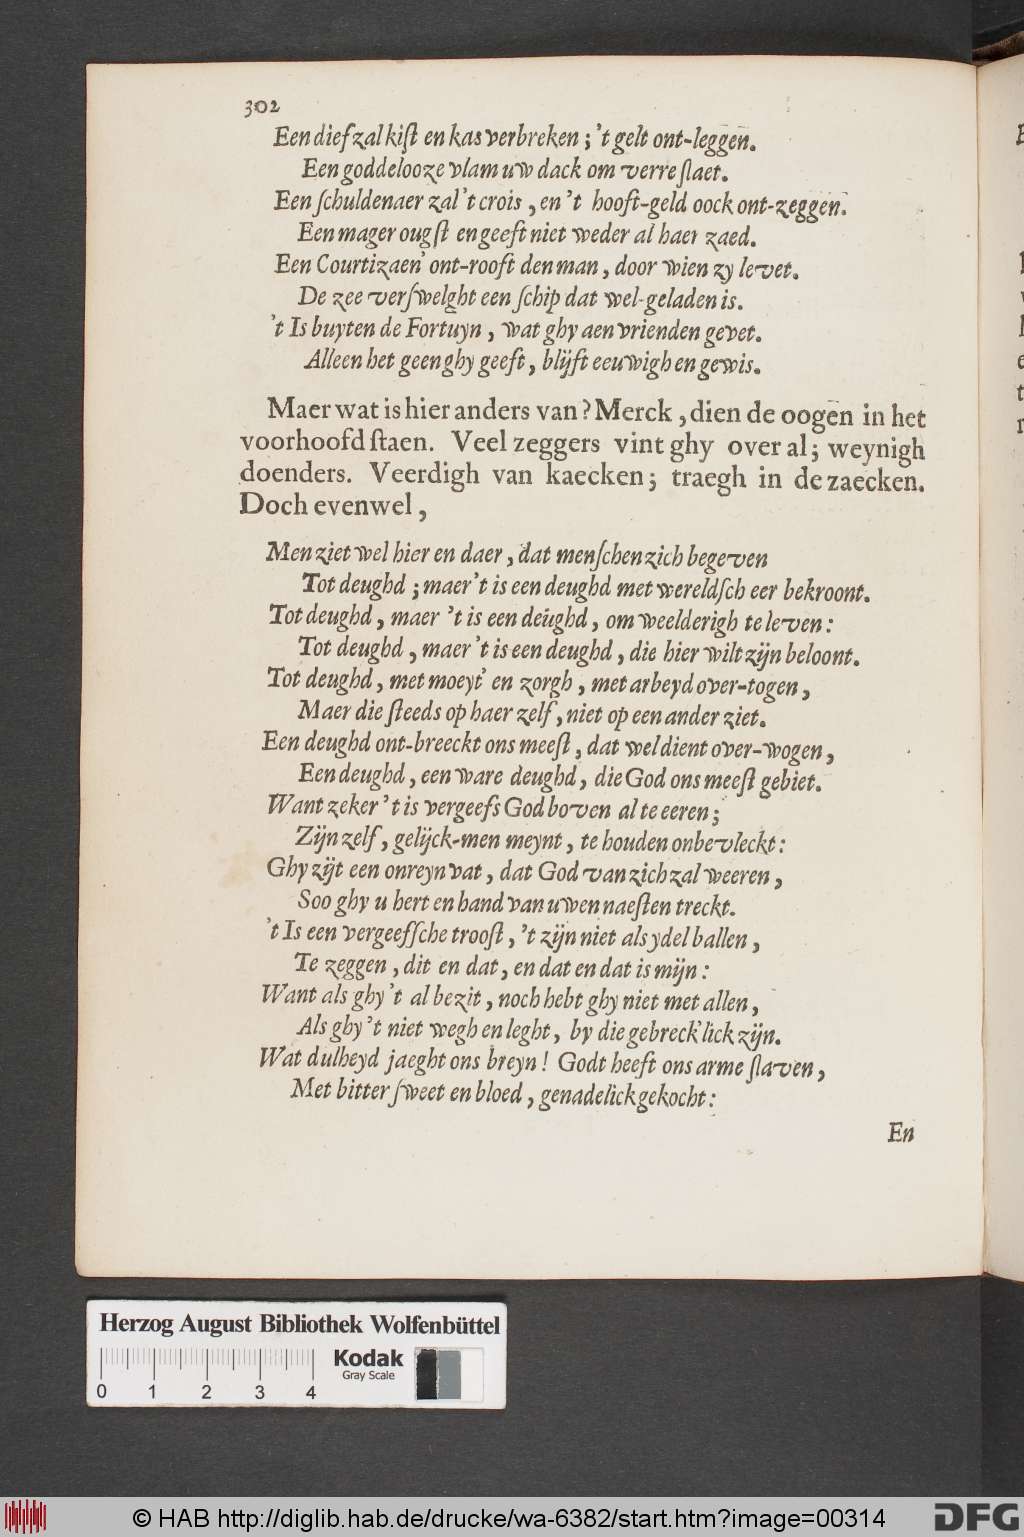 302
Een dief zal kiſt en kas verbreken; 't gelt ont-leggen.
Een goddelooze vlam uw dack om verre ſlaet.
Een ſchuldenaer zal 't crois, en 't hooft-geld oock ont-zeggen.
Een mager ougſt en geeft niet weder al haer zaed.
Een Courtizaen' ont-rooft den man, door wien zy levet.
De zee verſwelght een ſchip dat wel-geladen is.
't Is buyten de Fortuyn, wat ghy aen vrienden gevet.
Alleen het geen ghy geeft, blijft eeuwigh en gewis.
Maer wat is hier anders van? Merck, dien de oogen in het
voorhoofd ſtaen. Veel zeggers vint ghy over al; weynigh
doenders. Veerdigh van kaecken; traegh in de zaecken.
Doch evenwel,
Men ziet wel hier en daer, dat menſchen zich begeven
Tot deughd; maer 't is een deughd met wereldſch eer bekroont.
Tot deughd, maer 't is een deughd, om weelderigh te leven:
Tot deughd, maer 't is een deughd, die hier wilt zijn beloont.
Tot deughd, met moeyt' en zorgh, met arbeyd over-togen,
Maer die ſteeds op haer zelf, niet op een ander ziet.
Een deughd ont-breeckt ons meeſt, dat wel dient over-wogen,
Een deughd, een ware deughd, die God ons meeſt gebiet.
Want zeker 't is vergeefs God boven al te eeren;
Zijn zelf, gelijck-men meynt, te houden onbevleckt:
Ghy zijt een onreyn vat, dat God van zich zal weeren,
Soo ghy u hert en hand van uwen naeſten treckt.
't Is een vergeefſche trooſt, 't zijn niet als ydel ballen,
Te zeggen, dit en dat, en dat en dat is mijn:
Want als ghy 't al bezit, noch hebt ghy niet met allen,
Als ghy 't niet wegh en leght, by die gebreck'lick zijn.
Wat dulheyd jaeght ons breyn! Godt heeft ons arme ſlaven,
Met bitter ſweet en bloed, genadelick gekocht:
En
Herzog August Bibliothek Wolfenbüttel
Kodak
Gray Scale
0 1 2 3 4
© HAB http://diglib.hab.de/drucke/wa-6382/start.htm?image=00314
DFG